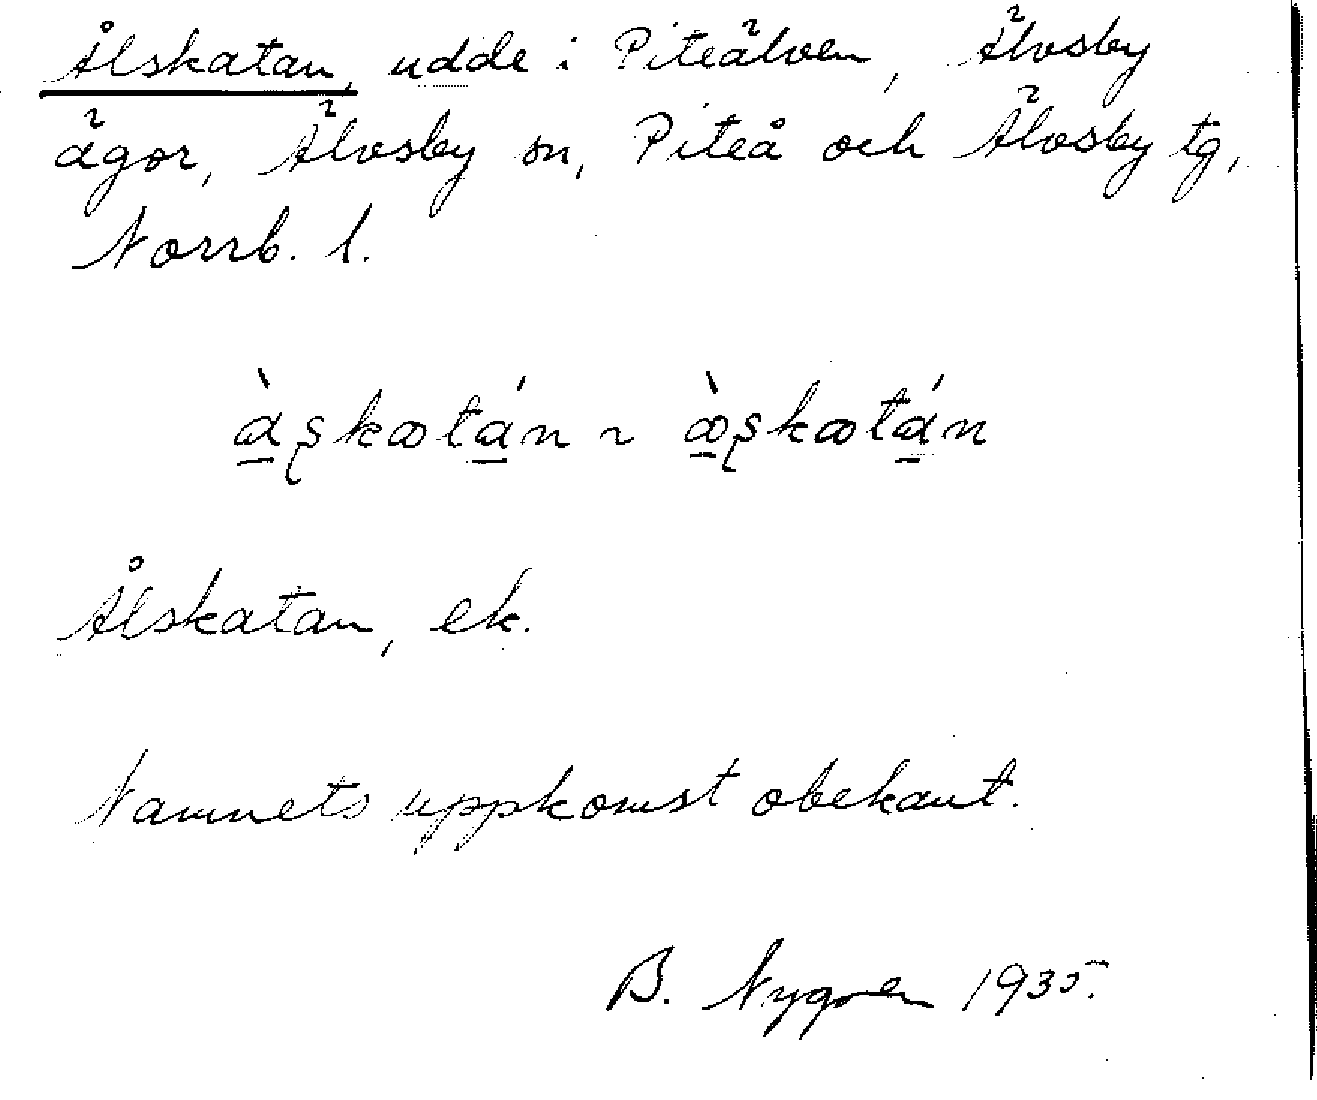 Ålskatan, udde i Piteälven, Älvsby
ägor, Älvsby sn, Piteå och Älvsby tg,
Norrb. l.
à̱ʂkωtá̱n ~ ὼ̱ʂkωtá̱n
Ålskatan, ek.
Namnets uppkomst obekant.
B. Nygren 1935.